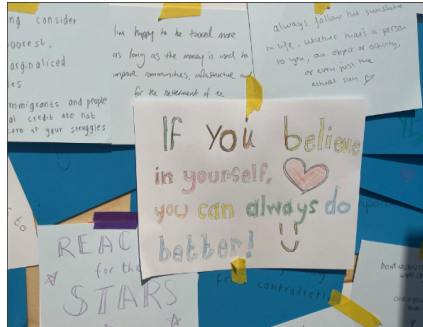 ng consider
oorest,
arginalised
es
mmigrants and people
al credit are not
your struggles
I'm happy to be taxed more
as long as the money is used to
improve communities, infrastructure and
for the betterment of
always follow the sunshine
in life, whether that's a person
to you, an object or activity,
or even just the
actual sun
IF you believe
in yourself,
you can always do
better!
REAC
for the
STARS
contradictory